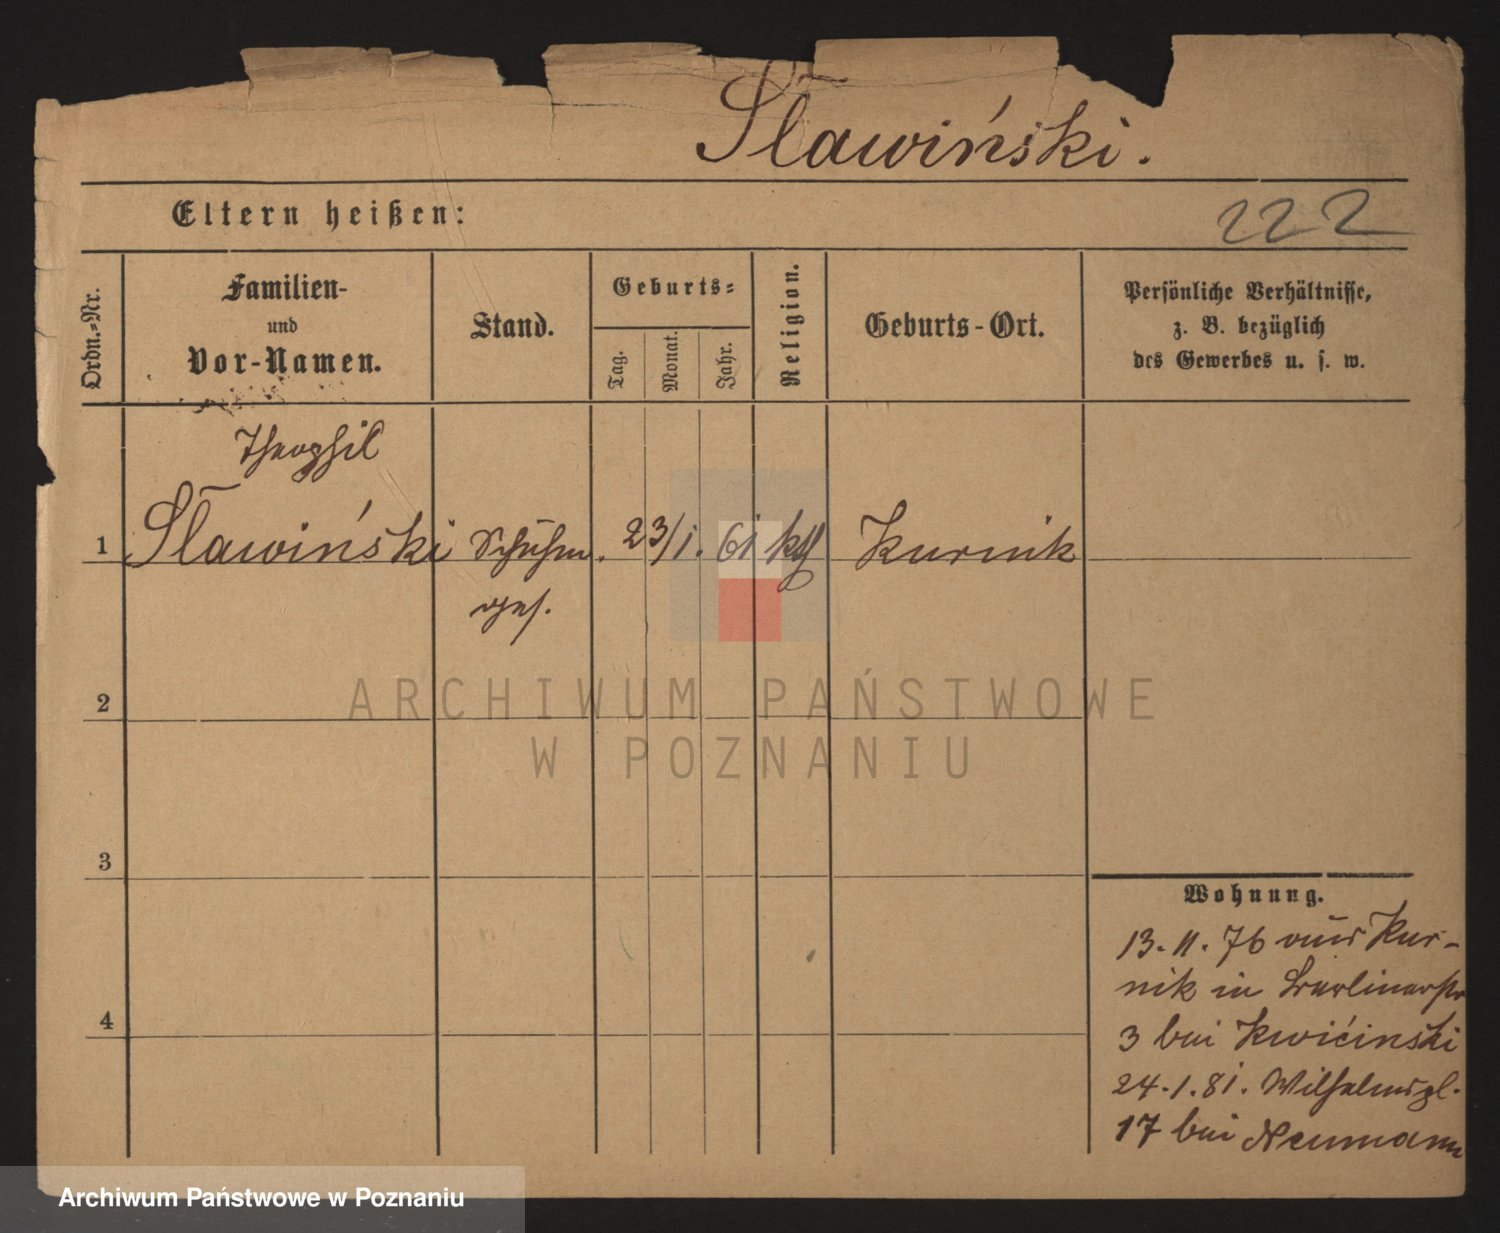 Sławiński.
Eltern heißen:
222
Ordn.=Nr.
Familien-
und
Vor-Namen.
Stand.
Geburts=
Tag.
Monat.
Jahr.
Religion.
Geburts-Ort.
Persönliche Verhältnisse,
z. B. bezüglich
des Gewerbes u. s. w.
Theophil
1 Sławiński Schuhm. 23/1. 61 kth Kurnik
ges.
2
3
4
Wohnung.
13. 11. 76 aus Kur-
nik in Berlinerstr
3 bei Kwiciński
24. 1. 81. Wilhelmspl.
17 bei Neumann
ARCHIWUM PAŃSTWOWE
W POZNANIU
Archiwum Państwowe w Poznaniu